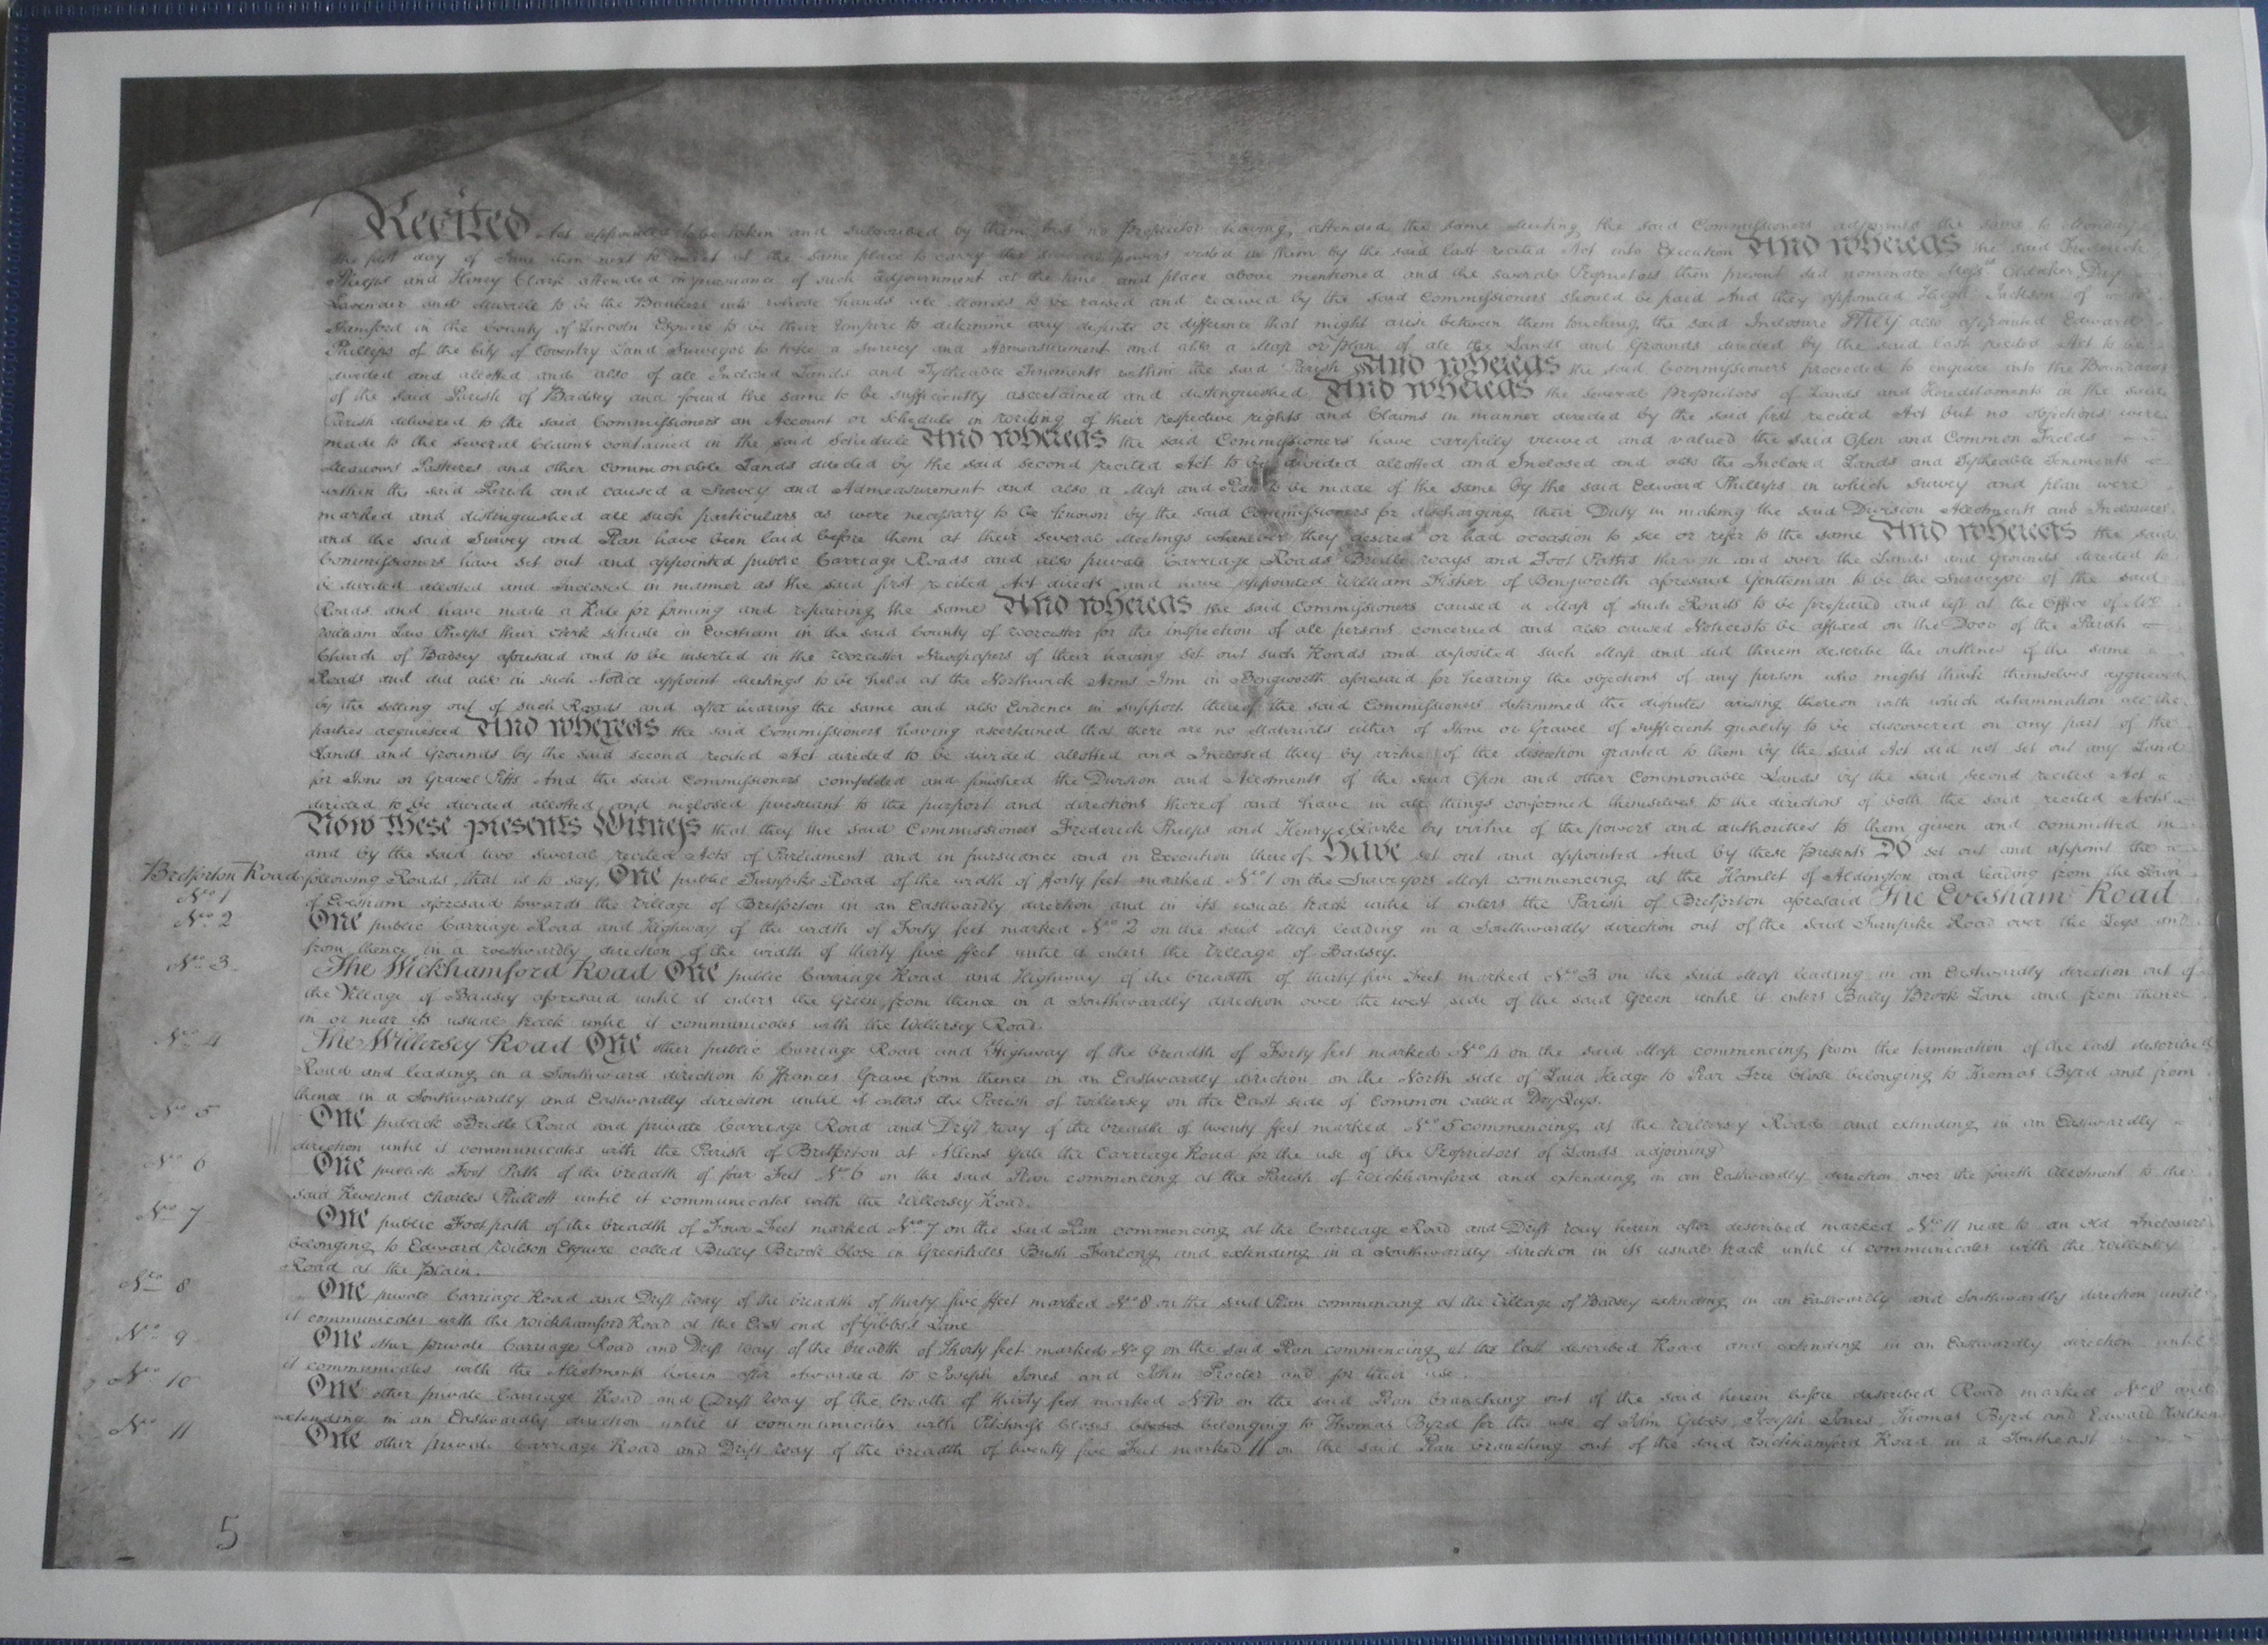 Recited Act appointed to be taken and subscribed by them but no Proprietor having attended the same Meeting the said Commissioners adjourned the same to Monday
the first day of June then next to meet at the same place to carry the several powers vested in them by the said last recited Act into Execution And whereas the said Frederick
Phelps and Henry Clark attended in pursuance of such adjournment at the time and place above mentioned and the several Proprietors then present did nominate Mess.rs Oldaker Day
Lavender and Murrile to be the Bankers into whose hands all Monies to be raised and received by the said Commissioners should be paid And they appointed Hugh Jackson of
Stamford in the County of Lincoln Esquire to be their Umpire to determine any dispute or difference that might arise between them touching the said Inclosure They also appointed Edward
Phillips of the City of Coventry Land Surveyor to take a Survey and Admeasurement and also a Map or plan of all the Lands and Grounds directed by the said last recited Act to be
divided and allotted and also of all Inclosed Lands and Tytheable Tenements within the said Parish And whereas the said Commissioners proceeded to enquire into the Boundaries
of the said Parish of Badsey and found the same to be sufficiently ascertained and distinguished And whereas the several Proprietors of Lands and Hereditaments in the said
Parish delivered to the said Commissioners an Account or Schedule in writing of their respective rights and Claims in manner directed by the said first recited Act but no objections were
made to the several Claims contained in the said Schedule And whereas the said Commissioners have carefully viewed and valued the said Open and Common Fields
Meadows Pastures and other commonable Lands directed by the said second recited Act to be divided allotted and Inclosed and also the Inclosed Lands and Tytheable Tenements
within the said Parish and caused a Survey and Admeasurement and also a Map and Plan to be made of the same by the said Edward Phillips in which Survey and plan were
marked and distinguished all such particulars as were necessary to be known by the said Commissioners for discharging their Duty in making the said Division Allotments and Inclosures
and the said Survey and Plan have been laid before them at their several Meetings whenever they desired or had occasion to see or refer to the same And whereas the said
Commissioners have set out and appointed public Carriage Roads and also private Carriage Roads Bridle ways and Foot Paths through and over the Lands and Grounds directed to
be divided allotted and Inclosed in manner as the said first recited Act directs and have appointed William Fisher of Bengworth aforesaid Gentleman to be the Surveyor of the said
Roads and have made a Rate for forming and repairing the same And whereas the said Commissioners caused a Map of such Roads to be prepared and left at the Office of Mr.
William Law Phelps their Clerk situate in Evesham in the said County of Worcester for the inspection of all persons concerned and also caused Notices to be affixed on the Door of the Parish
Church of Badsey aforesaid and to be inserted in the Worcester Newspapers of their having set out such Roads and deposited such Map and did therein describe the outlines of the same
Roads and did also in such Notice appoint Meetings to be held at the Northwick Arms Inn in Bengworth aforesaid for hearing the objections of any person who might think themselves aggrieved
by the setting out of such Roads and after hearing the same and also Evidence in support thereof the said Commissioners determined the disputes arising thereon with which determination all the
parties acquiesced And whereas the said Commissioners having ascertained that there are no Materials either of Stone or Gravel of sufficient quality to be discovered on any part of the
Lands and Grounds by the said second recited Act directed to be divided allotted and Inclosed they by virtue of the discretion granted to them by the said Act did not set out any Land
for Stone or Gravel Pitts And the said Commissioners compleated and finished the Division and Allotments of the said Open and other Commonable Lands by the said second recited Act
directed to be divided allotted and inclosed pursuant to the purport and directions thereof and have in all things conformed themselves to the directions of both the said recited Acts
Now these presents Witness that they the said Commissioners Frederick Phelps and Henry Clarke by virtue of the powers and authorities to them given and committed in
and by the said two several recited Acts of Parliament and in pursuance and in Execution thereof Have set out and appointed And by these Presents Do set out and appoint the
Bretforton Road following Roads, that is to say, One public Turnpike Road of the width of forty feet marked No. 1 on the Surveyors Map commencing at the Hamlet of Aldington and leading from the Town
No. 1 of Evesham aforesaid towards the village of Bretforton in an Eastwardly direction and in its usual track until it enters the Parish of Bretforton aforesaid The Evesham Road
No. 2 One public Carriage Road and Highway of the width of Forty feet marked No. 2 on the said Map leading in a Southwardly direction out of the said Turnpike Road over the Leys and
from thence in a westwardly direction of the width of thirty five feet until it enters the Village of Badsey.
No. 3 The Wickhamford Road One public Carriage Road and Highway of the breadth of thirty five Feet marked No. 3 on the said Map leading in an Eastwardly direction out of
the Village of Badsey aforesaid until it enters the Green from thence in a Southwardly direction over the west side of the said Green until it enters Bully Brook Lane and from thence
in or near its usual track until it communicates with the Willersey Road.
No. 4 The Willersey Road One other public Carriage Road and Highway of the breadth of Forty feet marked No. 4 on the said Map commencing from the termination of the last described
Road and leading in a Southward direction to Frances Grave from thence in an Eastwardly direction on the North side of Laid Hedge to Pear Tree Close belonging to Thomas Byrd and from
thence in a Southwardly and Eastwardly direction until it enters the Parish of Willersey on the East side of Common called Dry Leys.
No. 5 One publick Bridle Road and private Carriage Road and Drift way of the breadth of twenty feet marked No. 5 commencing at the Willersey Road and extending in an Eastwardly
direction until it communicates with the Parish of Bretforton at Allens Gate the Carriage Road for the use of the Proprietors of Lands adjoining
No. 6 One publick Foot Path of the breadth of four Feet No. 6 on the said Plan commencing at the Parish of Wickhamford and extending in an Eastwardly direction over the fourth Allotment to the
said Reverend Charles Phillott until it communicates with the Willersey Road.
No. 7 One public Footpath of the breadth of Four Feet marked No. 7 on the said Plan commencing at the Carriage Road and Drift way herein after described marked No. 11 near to an old Inclosure
belonging to Edward Wilson Esquire called Bully Brook Close in Greenhills Bush Furlong and extending in a Southwardly direction in its usual track until it communicates with the Willersey
Road at the Plain.
No. 8 One private Carriage Road and Drift way of the breadth of thirty five feet marked No. 8 on the said Plan commencing at the Village of Badsey extending in an Eastwardly and Southwardly direction until
it communicates with the Wickhamford Road at the East end of Gibbs's Lane
No. 9 One other private Carriage Road and Drift way of the breadth of Thirty feet marked No. 9 on the said Plan commencing at the last described Road and extending in an Eastwardly direction until
it communicates with the Allotments herein after awarded to Joseph Jones and John Procter and for their use.
No. 10 One other private Carriage Road and Drift way of the breadth of thirty feet marked No. 10 on the said Plan branching out of the said herein before described Road marked No. 8 and
extending in an Eastwardly direction until it communicates with Pitchwell Closes belonging to Thomas Byrd for the use of John Gibbs, Joseph Jones, Thomas Byrd and Edward Wilson
No. 11 One other private Carriage Road and Drift way of the breadth of twenty five Feet marked 11 on the said Plan branching out of the said Wickhamford Road in a Southeast
5